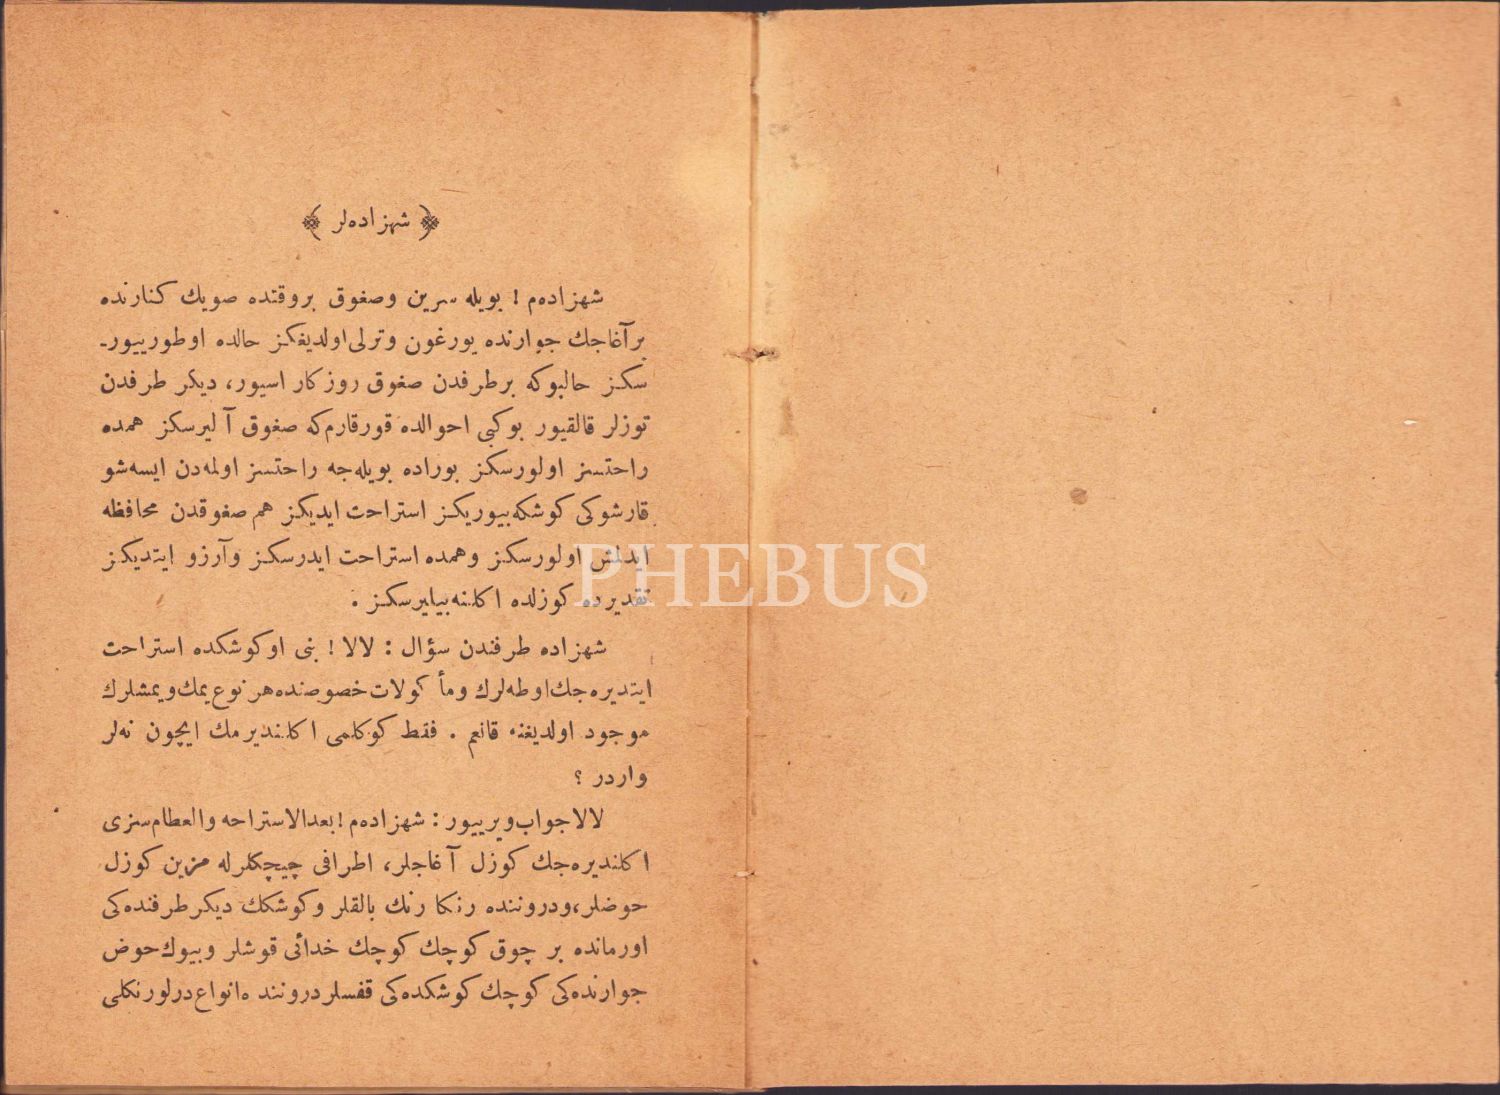 ﴿ شهزاده‌لر ﴾
شهزاده‌م ! بویله سرین وصغوق بروقتده صویك كنارنده
برآغاجك جوارنده یورغون وترلی‌اولدیغكز حالده اوطورییور-
سكز حالبوكه برطرفدن صغوق روزكار اسیور، دیكر طرفدن
توزلر قالقیور بوكبی احوالده قورقارم‌كه صغوق آلیرسكز همده
راحتسز اولورسكز بوراده بویله‌جه راحتسز اولمه‌دن ایسه‌شو
قارشوكی كوشكه‌بیوریكز استراحت ایدیكز هم صغوقدن محافظه
ایدلمش اولورسكز وهمده استراحت ایدرسكز وآرزو ایتدیكز
تقدیرده كوزلده اكلنه‌بیلیرسكز .
شهزاده طرفندن سؤال : لالا ! بنی اوكوشكده استراحت
ایتدیره‌جك‌اوطه‌لرك ومأكولات‌خصوصنده‌هر نوع‌یمك‌ویمشلرك
موجود اولدیغنه قانعم . فقط كوكلمی اكلندیرمك ایچون نه‌لر
واردر ؟
لالاجواب‌ویرییور : شهزاده‌م ! بعدالاستراحه والعطام‌سزی
اكلندیره‌جك كوزل آغاجلر، اطرافی چیچكلرله مزین كوزل
حوضلر،ودروننده رنكا رنك بالقلر وكوشكك دیكرطرفنده‌كی
اورمانده بر چوق كوچك كوچك خدائی قوشلر وبیوك‌حوض
جوارنده‌كی كوچك كوشكده‌كی قفسلردروننده انواع‌درلورنكلی
PHEBUS